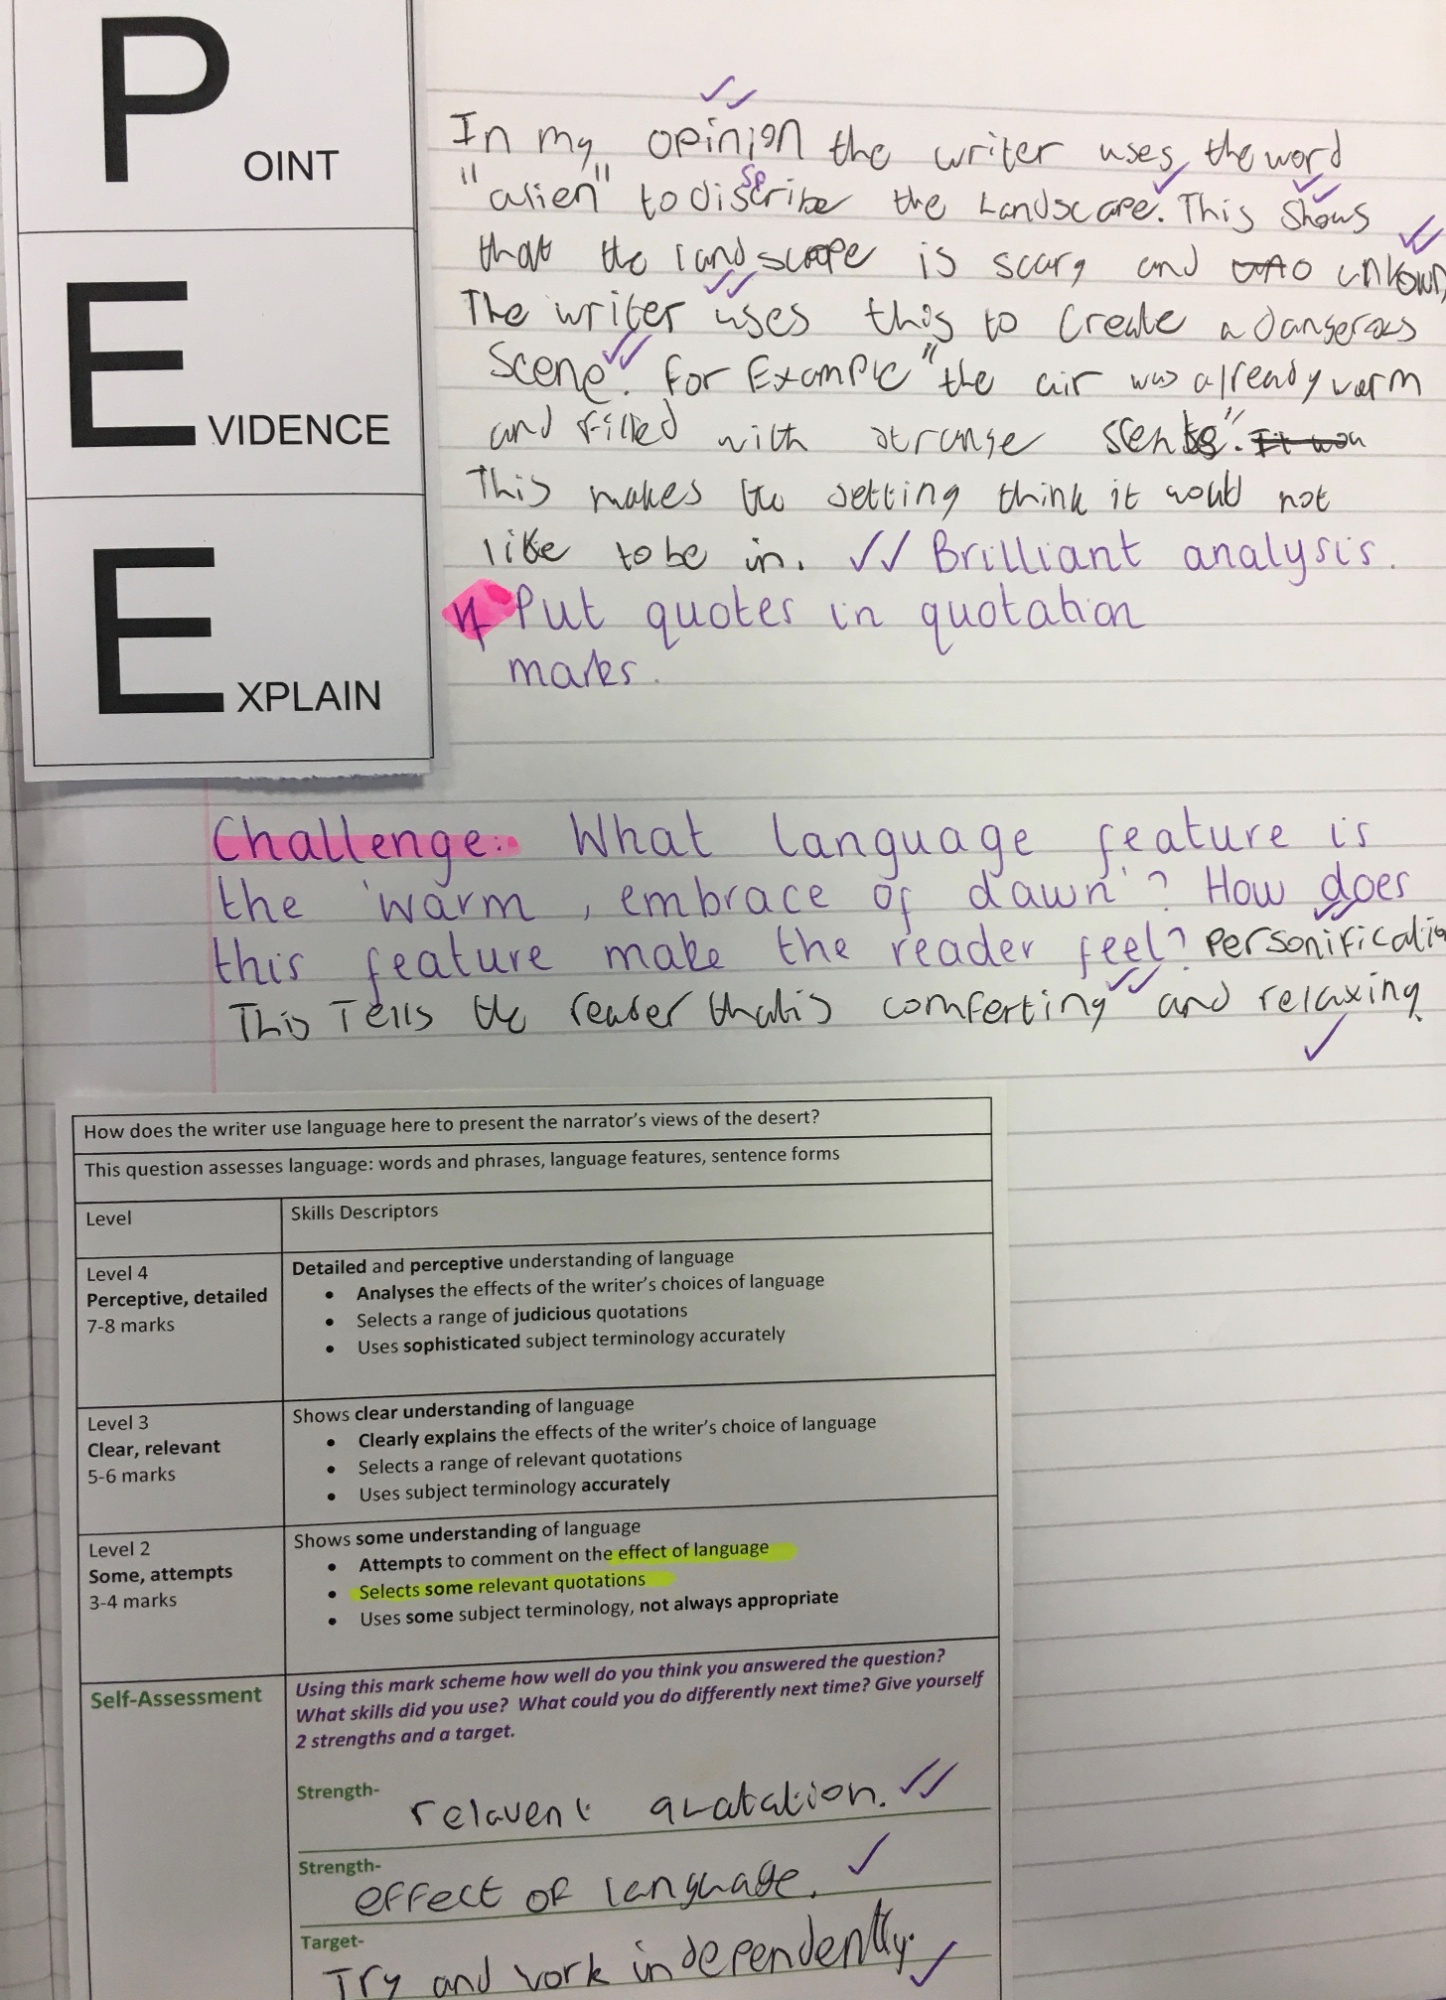 POINT
EVIDENCE
EXPLAIN
In my opinion the writer uses the word
"alien" to discribe the Landscape. This shows
sp
that the landscape is scary and unkown
The writer uses this to create a dangerous
scene. For Example "the air was already warm
and filled with strange scents". It was
This makes the setting think it would not
like to be in. Brilliant analysis.
Put quotes in quotation
marks.
Challenge: What language feature is
the 'warm, embrace of dawn'? How does
this feature make the reader feel? Personificatio
This Tells the reader that is comferting and relaxing.
How does the writer use language here to present the narrator's views of the desert?
This question assesses language: words and phrases, language features, sentence forms
Level Skills Descriptors
Level 4
Perceptive, detailed
7-8 marks
Detailed and perceptive understanding of language
• Analyses the effects of the writer's choices of language
• Selects a range of judicious quotations
• Uses sophisticated subject terminology accurately
Level 3
Clear, relevant
5-6 marks
Shows clear understanding of language
• Clearly explains the effects of the writer's choice of language
• Selects a range of relevant quotations
• Uses subject terminology accurately
Level 2
Some, attempts
3-4 marks
Shows some understanding of language
• Attempts to comment on the effect of language
• Selects some relevant quotations
• Uses some subject terminology, not always appropriate
Self-Assessment
Using this mark scheme how well do you think you answered the question?
What skills did you use? What could you do differently next time? Give yourself
2 strengths and a target.
Strength- relavent quatation.
Strength- effect of language.
Target-
Try and work independently.